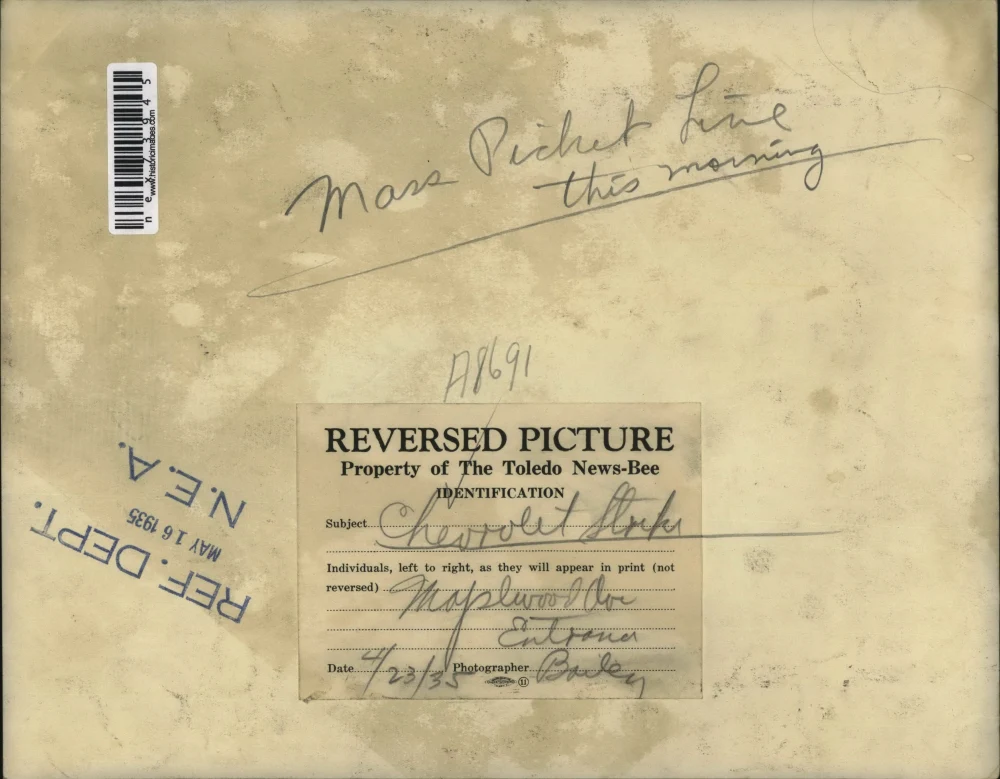 Mass Picket Line
this morning
A8691
REVERSED PICTURE
Property of The Toledo News-Bee
IDENTIFICATION
Subject Chevrolet Strike
Individuals, left to right, as they will appear in print (not
reversed) Maplewood Ave
Entrance
Date 4/23/35 Photographer Bailey
N.E.A.
MAY 16 1935
REF. DEPT.
www.historicimages.com